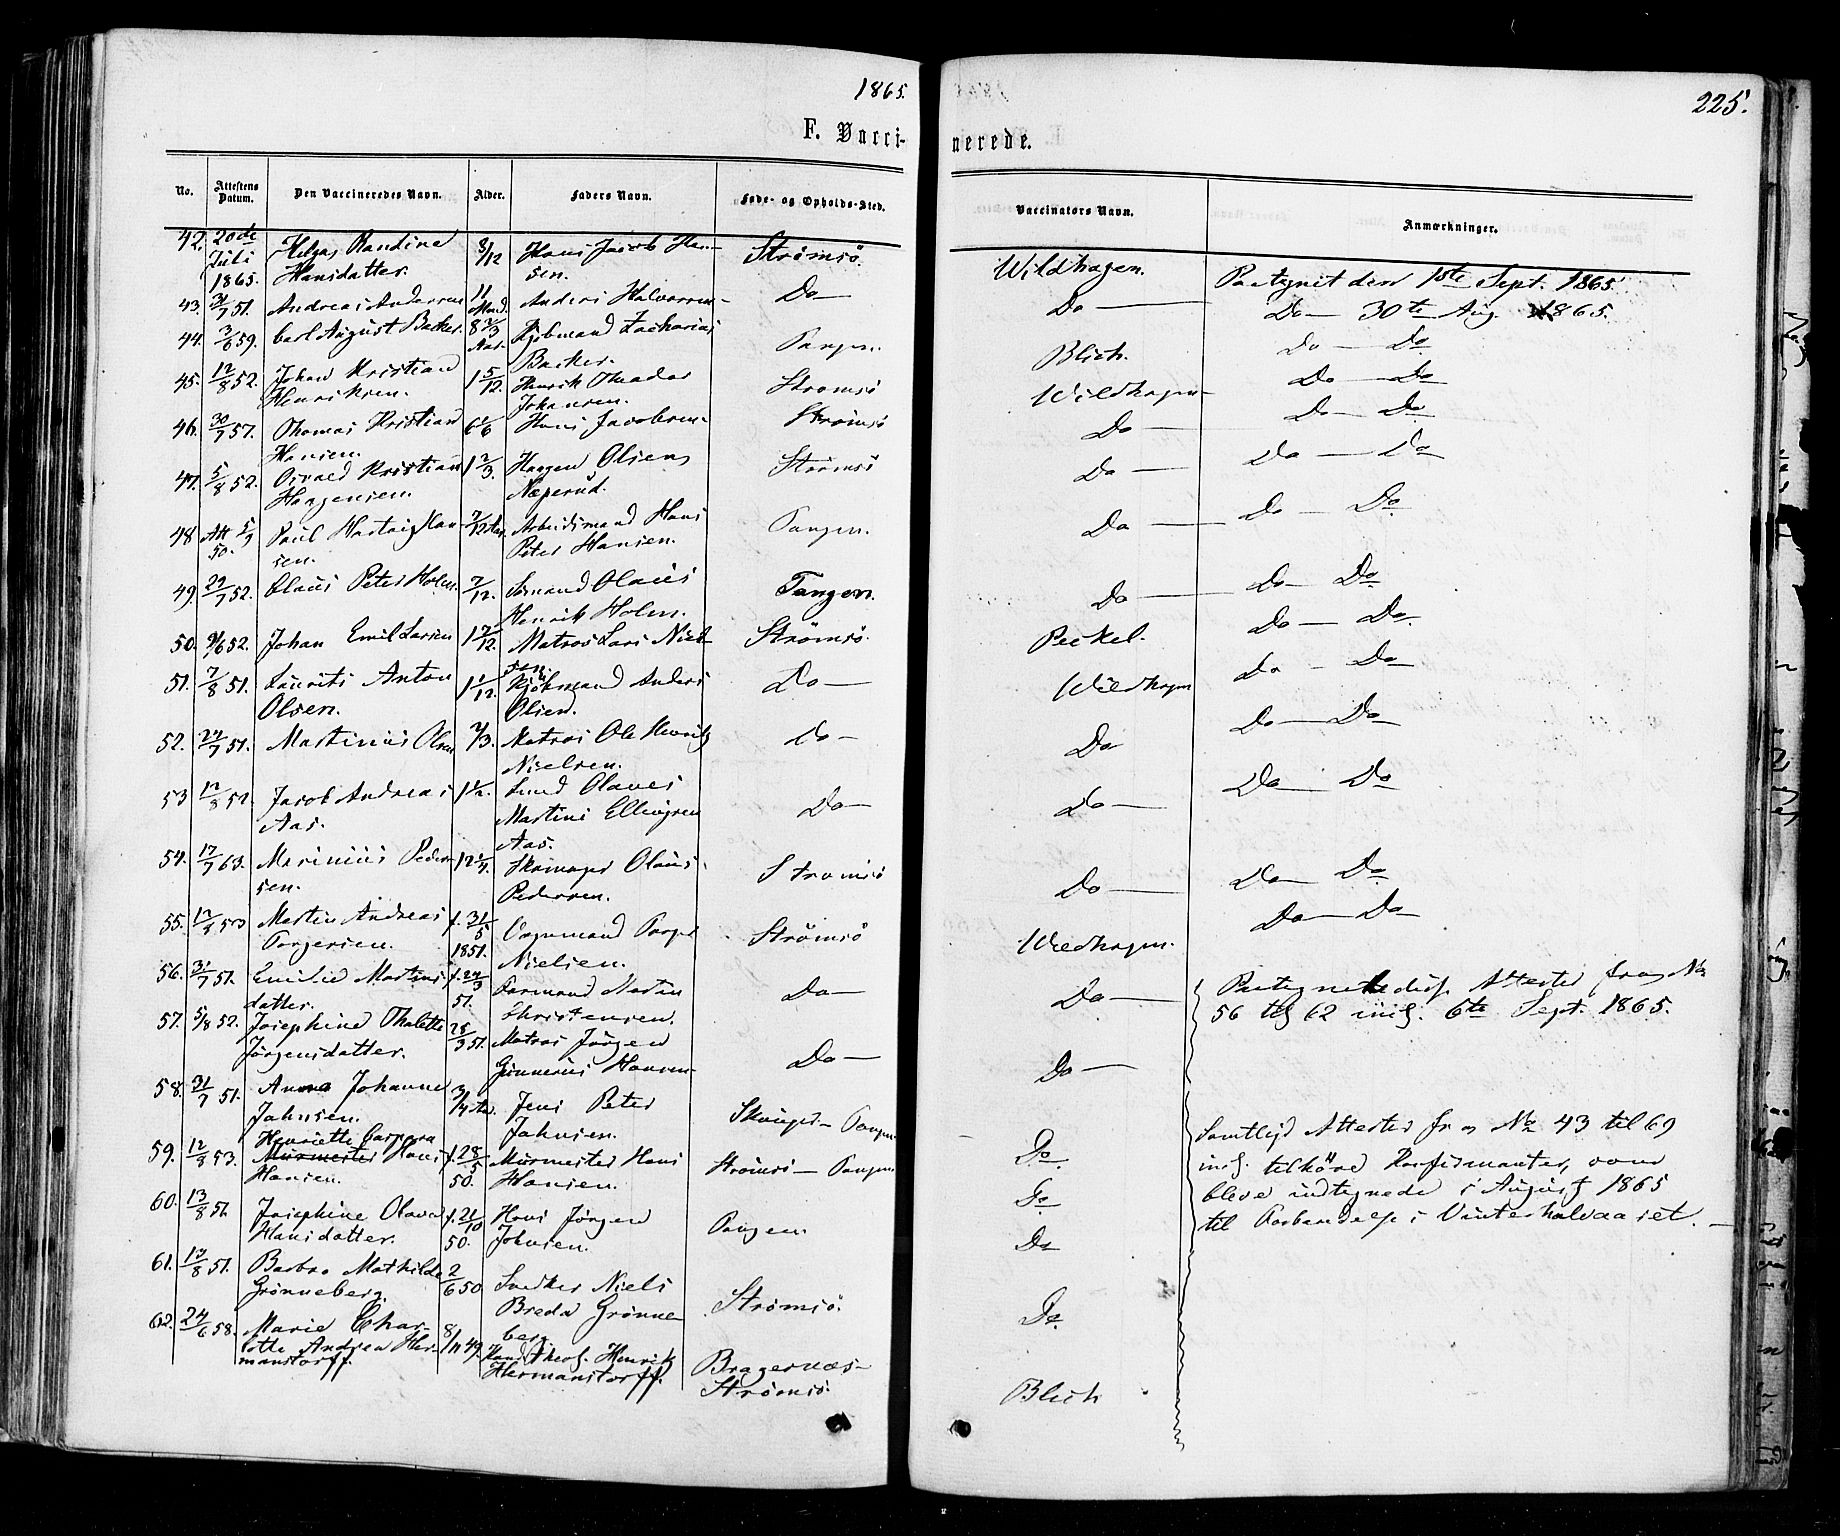 1865.
225.
F. Vacci-
nerede.
No. Attestens Datum. Den Vaccineredes Navn. Alder. Faders Navn. Føde- og Opholds-Sted. Vaccinators Navn. Anmærkninger.
42. 20de Helga Randine 3/12 Hans Jacob Han- Strömsö. Wildhagen. den 1ste Sept. 1865.
Juli Hansdatter. sen.
1865.
43. 31/7 51. Andreas Andersen 11 Anders Halvorsen Do— Do— Do— 30te Aug. 1865.
Mand.
44. 3/6 59. Carl August Backer. 8 2/3 Kjöbmand Zacharias Tangen. Blich. Do—Do
Aar. Backer.
45. 12/8 52. Johan Kristian 1 5/12. Henrik Theodor Strömsö Wildhagen Do—Do
Henriksen. Johansen.
46. 30/7 57. Thomas Kristian 6 1/6 Hans Jacobsen Strömsö Do— Do—Do
Hansen.
47. 5/8 52. Kristian 1 2/3. Haagen Olsen Strömsö Do— Do—Do
Haagensen.
48 Att 5/9 Paul Hartvig Han- 7/12 Aar. Arbeidsmand Hans Tangen. Do— Do—Do
50. sen. Peter Hansen.
49. 29/7 52. Claus Peter Holm. 7/12. Sömand Olaus Tangen. Do— Do—Do
Henrik Holm.
50. 9/6 52. Johan Emil Larsen 1 7/12. Matros Lars Niel- Strömsö. Peckel. Do—Do
sen.
51. 7/8 51. Laurits Anton 1 1/12. Kjökmand Anders Do— Wildhagen Do—Do
Olsen. Olsen.
52. 27/7 51. Martinius Olsen 2/3. Matros Ole Henrik Do— Do Do—Do
Nielsen.
53 12/8 51. Jacob Andreas 1 1/2. Olaves Do— Do— Do—Do
Aas. Martins Ellingsen
Aas.
54. 17/7 63. Marinius Peder- 12 1/4. Skomager Olaus Strömsö Do— Do—Do
sen. Pedersen.
55. 12/8 53 Martin Andreas f. 31/5 Vognmand Torger Strömsö Wildhagen. Do—Do
Torgersen. 1851. Nielsen.
56. 31/7 51. Emilie Martins f. Formand Martin Do— Do— disse Attester fra No
datter. 51. Christensen. 56 til 62 incl. 6te Sept. 1865.
57. 5/8 52. Josephine Thalette 25/3 51. Matros Jörgen Do— Do—
Jörgensdatter. Gunnerius Hansen
58. 31/7 51. Anna Johanne 3/4 Aar. Jens Peter Skouger— Tangen Do.
Jahnsen. Jahnsen.
Samtlige Attester fra No 43 til 69
incl. tilhöre Konfirmanter, som
bleve indtegnede i August 1865
til Forberedelse i Vinterhalvaaret.—
Henriette Caspara
59. 12/8 53. Murmester Hans f. 28/5 Murmester Hans Strömsö— Tangen Do.
Hansen. 50. Hansen.
60. 13/8 51. Josephine Olava f. 21/10 Hans Jörgen Tangen Do
Hansdatter. 50. Johnsen.
61. 13/8 51. Barbra Mathilde 2/6 50 Snedker Niels Strömsö. Do.
Grönneberg. Breda Grönne
berg.
62. 24/6 58. Marie Char- 8/11 49. Theol. Henrik Bragernæs— Blich
lotte Andrea Her- Hermanstorff. Strömsö.
manstorff.